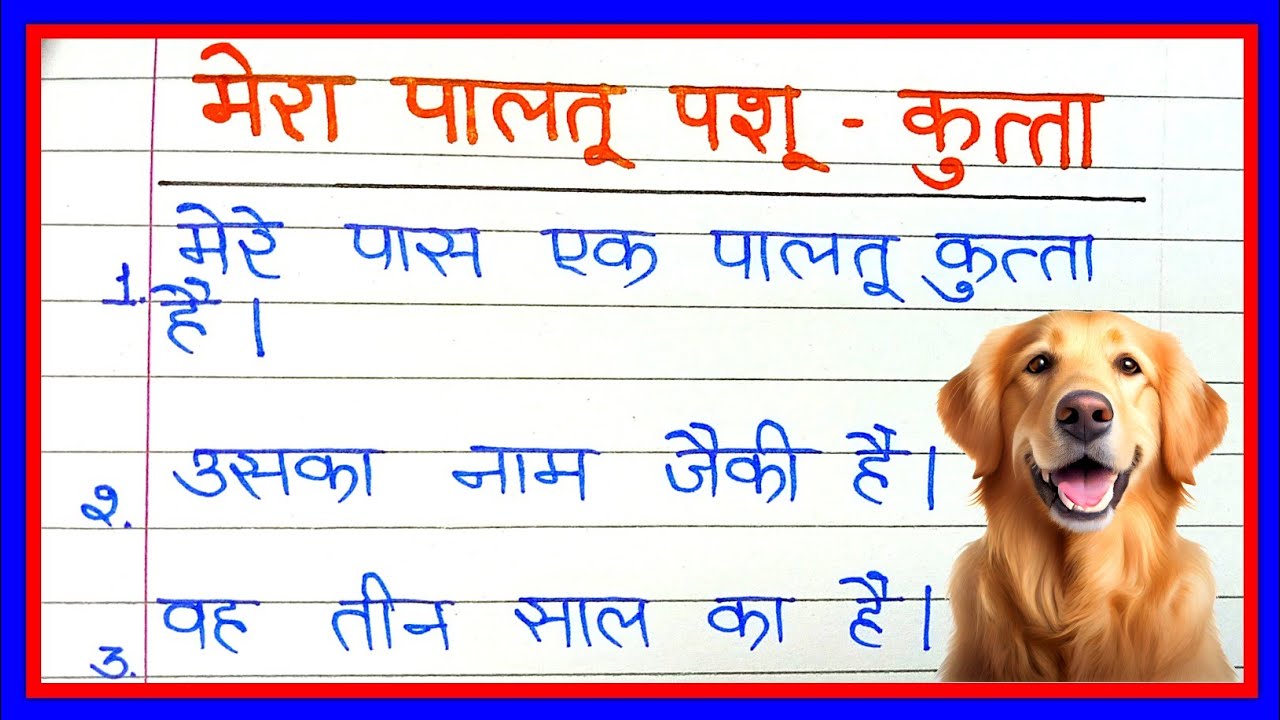 मेरा पालतू पशू - कुत्ता
1. मेरे पास एक पालतू कुत्ता
है।
2. उसका नाम जैकी है।
3. वह तीन साल का है।